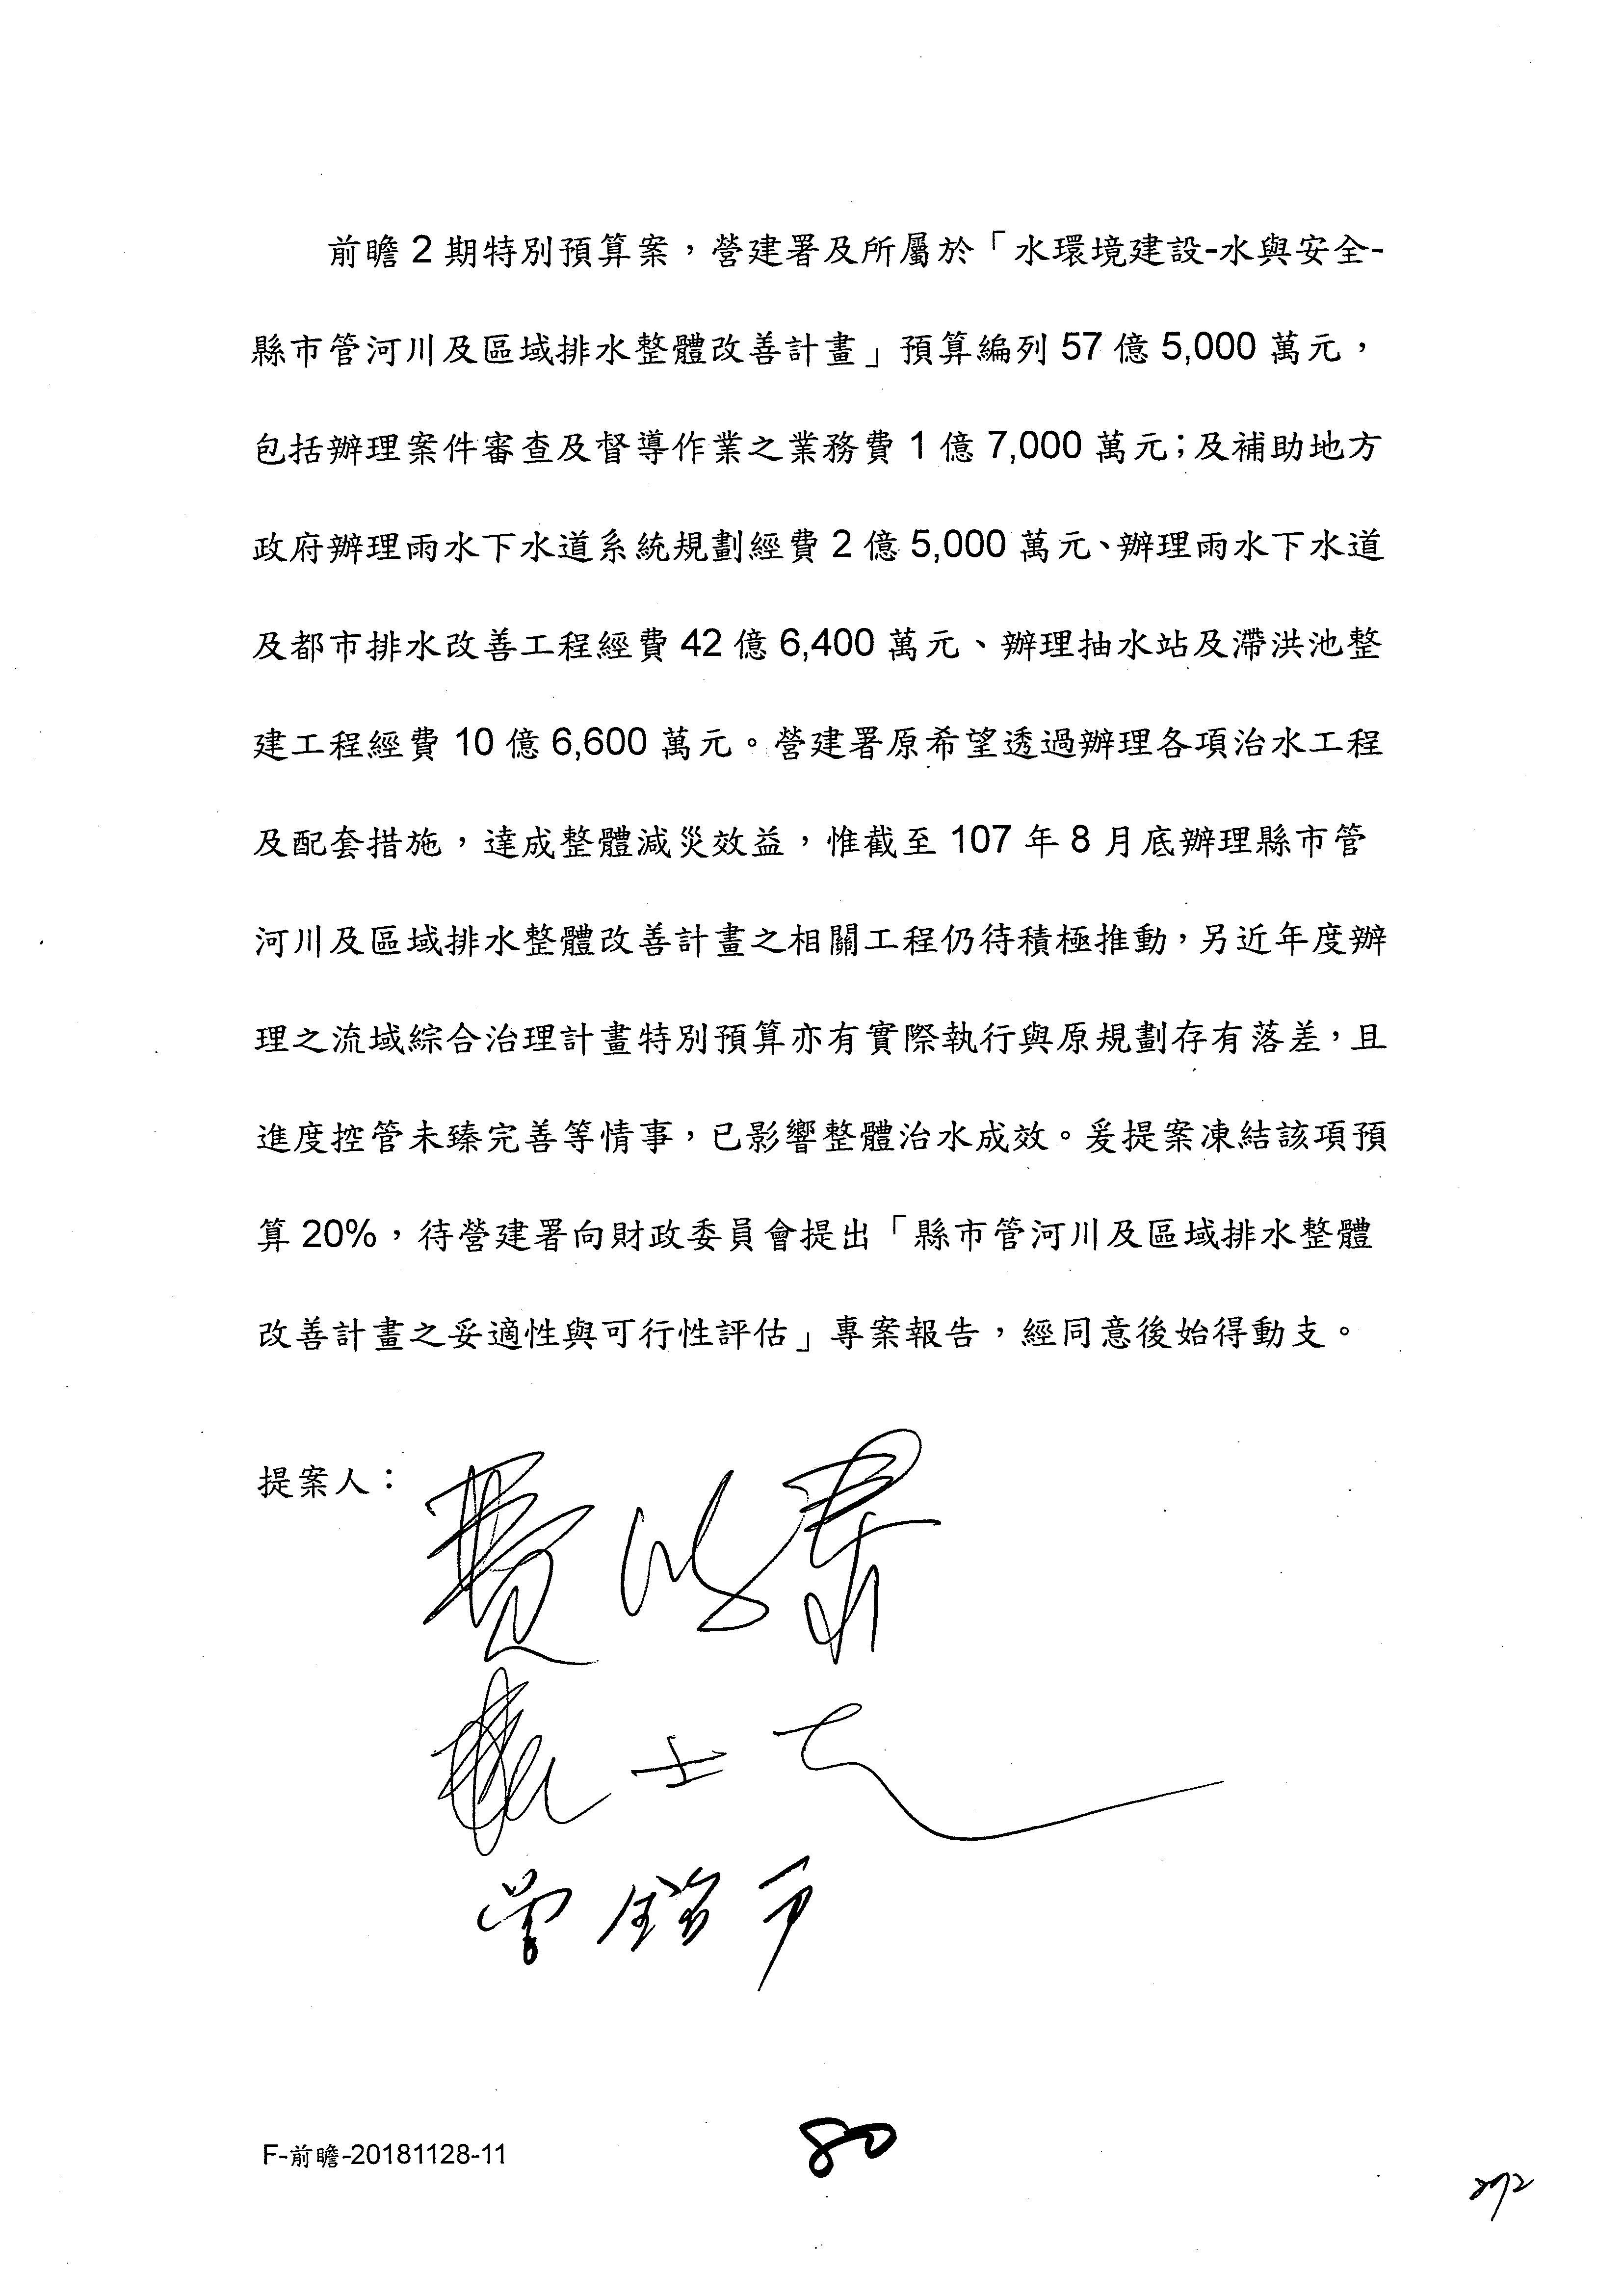 前瞻 2 期特別預算案，營建署及所屬於「水環境建設-水與安全-
縣市管河川及區域排水整體改善計畫」預算編列 57 億 5,000 萬元，
包括辦理案件審查及督導作業之業務費 1 億 7,000 萬元；及補助地方
政府辦理雨水下水道系統規劃經費 2 億 5,000 萬元、辦理雨水下水道
及都市排水改善工程經費 42 億 6,400 萬元、辦理抽水站及滯洪池整
建工程經費 10 億 6,600 萬元。營建署原希望透過辦理各項治水工程
及配套措施，達成整體減災效益，惟截至 107 年 8 月底辦理縣市管
河川及區域排水整體改善計畫之相關工程仍待積極推動，另近年度辦
理之流域綜合治理計畫特別預算亦有實際執行與原規劃存有落差，且
進度控管未臻完善等情事，已影響整體治水成效。爰提案凍結該項預
算 20%，待營建署向財政委員會提出「縣市管河川及區域排水整體
改善計畫之妥適性與可行性評估」專案報告，經同意後始得動支。
提案人：
費鴻泰
曾銘宗
F-前瞻-20181128-11
80